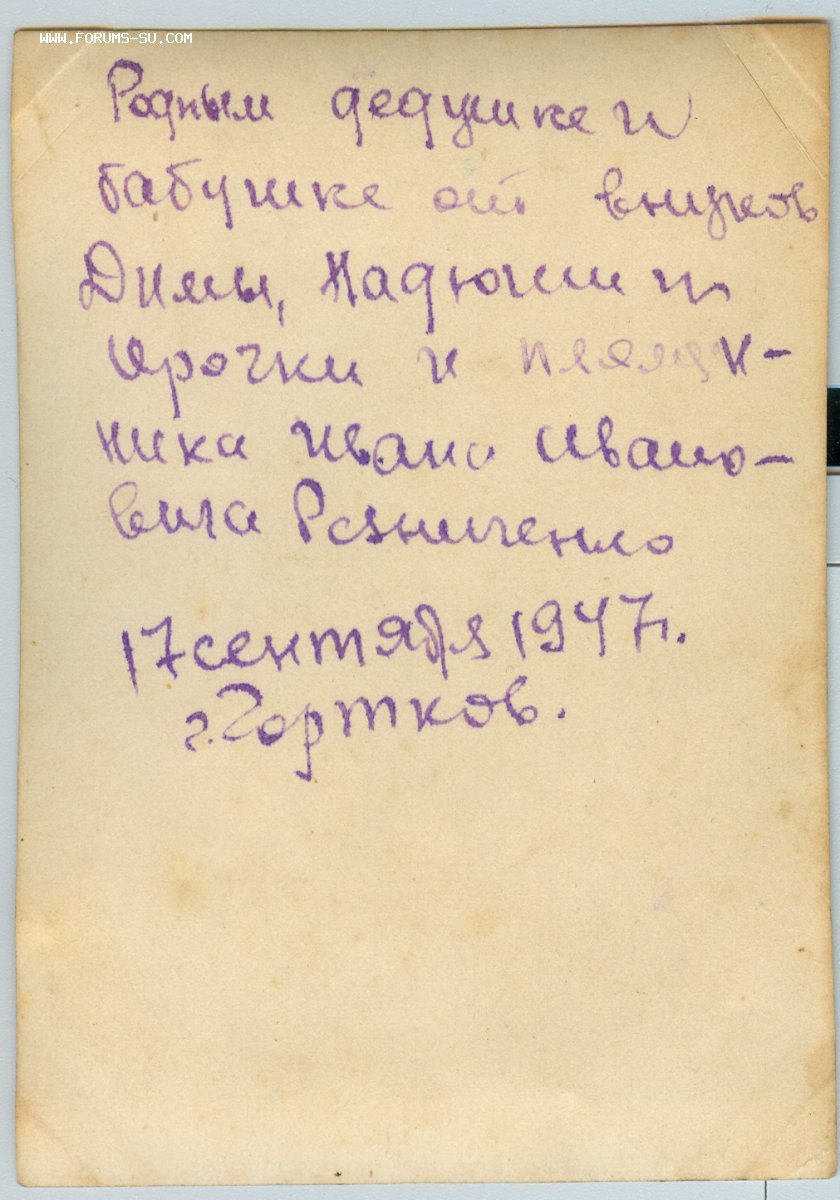 WWW.FORUMS-SU.COM
Родным дедушке и
бабушке от внуков
Димы, Надюши и
Ирочки и племян-
ника Ивана Ивано-
вича Резниченко
17 сентября 1947 г.
г. Чортков.